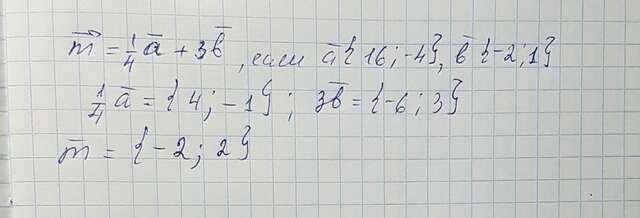 m⃗ = 1/4 a̅ + 3b̅, если a̅{16; -4}, b̅{-2; 1}
1/4 a̅ = {4; -1}; 3b̅ = {-6; 3}
m̅ = {-2; 2}